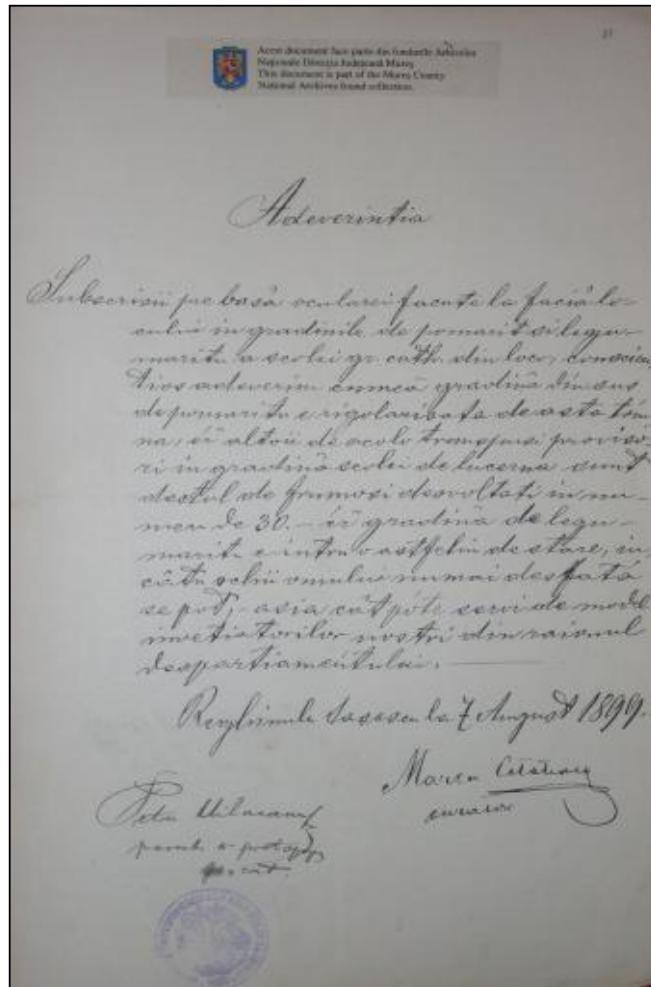 Acest document face parte din fondurile Arhivelor
Naționale Direcția Județeană Mureș
This document is part of the Mureș County
National Archives found collection.
Adeverintia
Subscrisii pe basă ocularei facute la facia lo-
cului in gradinile de pomarit si legu-
maritu a scolei gr. cath. din locu, conscien-
tios adeverim cumca gradina din sus
de pomaritu e rigolarisata de asta tóm-
na, ér altoii de acolo transpusi proviso-
ri in gradina scolei de lucerna sunt
destul de frumosi desvoltati in nu-
meru de 30. – ér gradina de legu-
maritu e intru o astfeliu de stare, in
câtu ochii omului numai desfata
se pot, asia cât póte servi de model
invetiatorilor nostri din raionul
despartiamentului.
Reghinulu Sasescu la 7 August 1899.
Petru
Marcu
curator